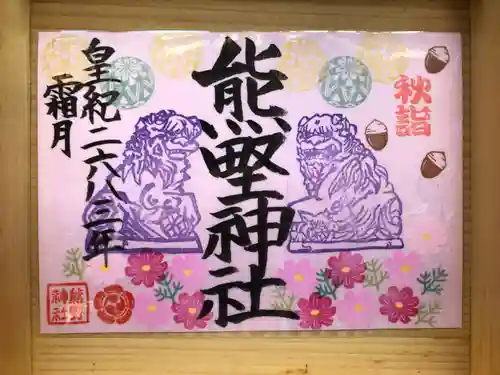 秋詣
熊野神社
皇紀二六八三年
霜月
熊野
神社